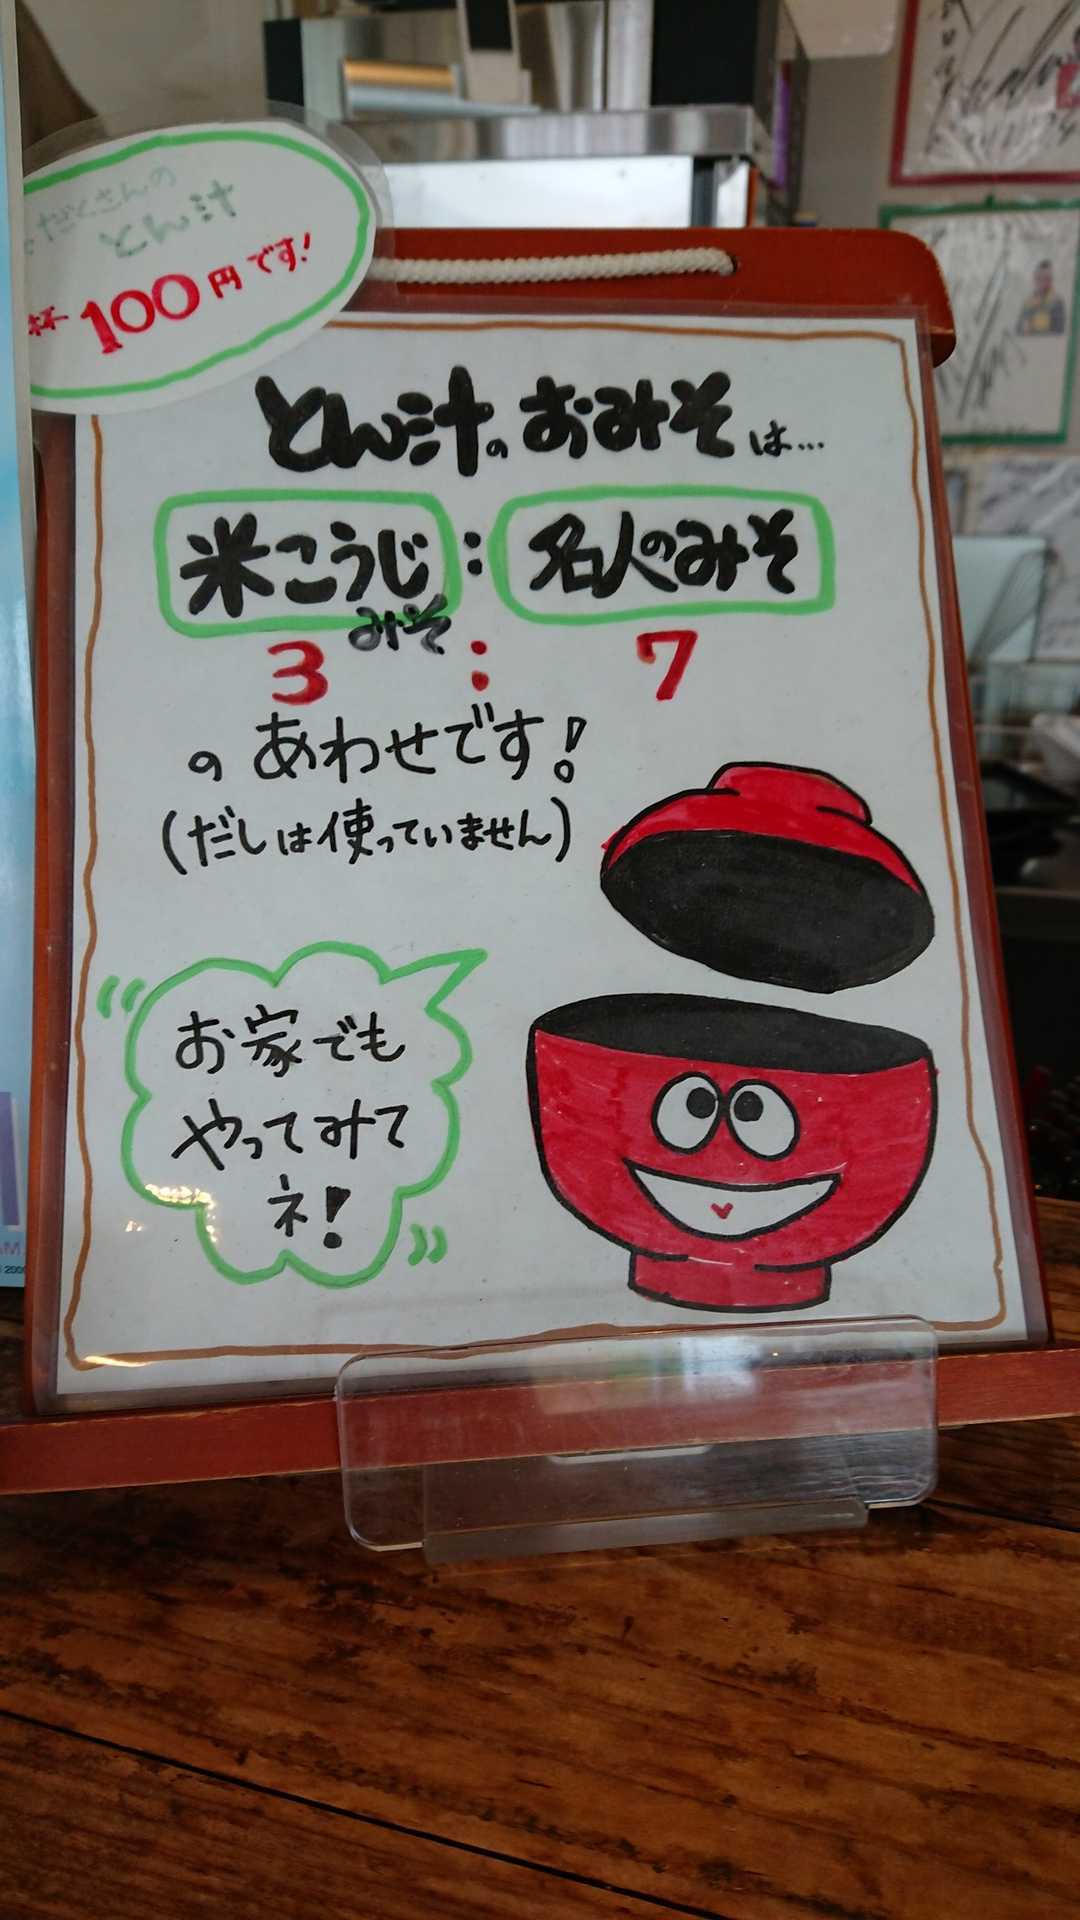 だくさんの
とん汁
杯100円です!
とん汁のおみそは...
米こうじみそ:名人のみそ
3:7
のあわせです!
(だしは使っていません)
お家でも
やってみて
ネ!